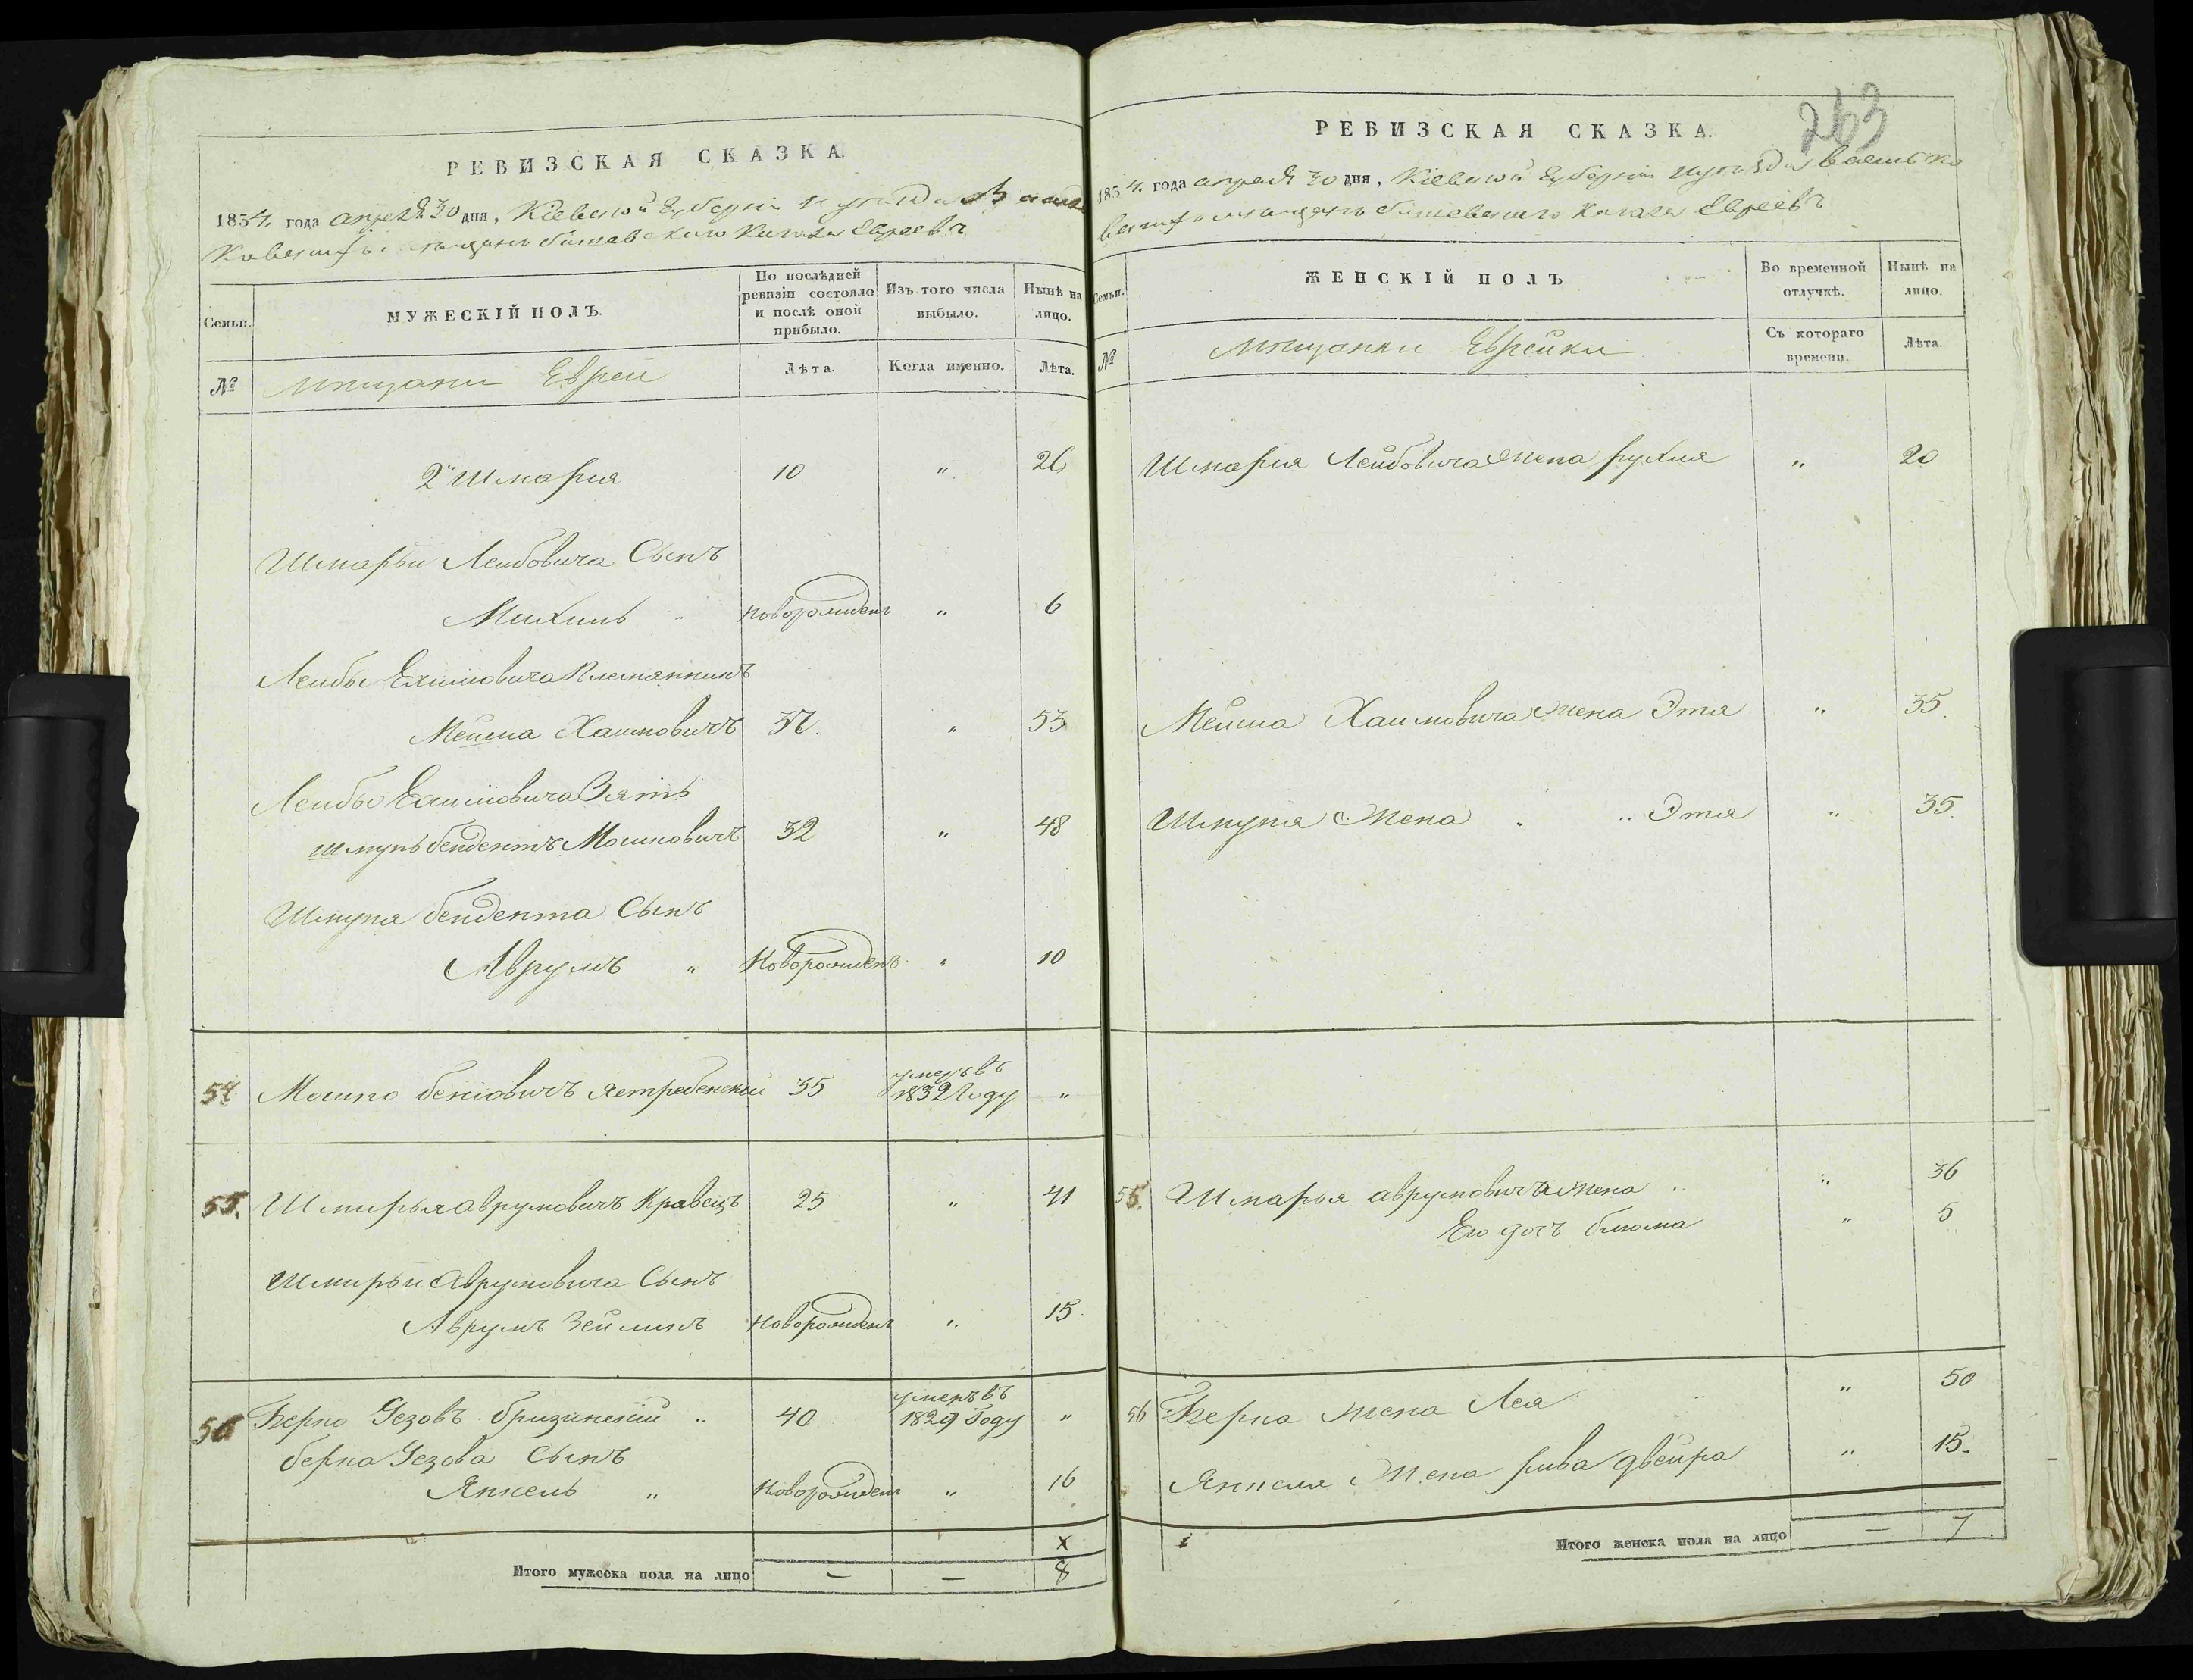 РЕВИЗСКАЯ СКАЗКА.
1834. года апреля 30 дня, Кіевской Губерніи и уезда Василь
ковскихъ мещанъ бышевского Кагала Евреевъ
Семьи.
МУЖЕСКІЙ ПОЛЪ.
По послѣдней ревизіи состояло и послѣ оной прибыло.
Изъ того числа выбыло.
Нынѣ на лицо.
№
мещани Евреи
Лѣта.
Когда именно.
Лѣта.
2й Шмарыя 10 " 26
Шмарьи Лейбовича Сынъ
Михиль новорожденъ " 6
Лейбы Хаимовича Племянникъ
Мейша Хаимовичъ 37. " 53
Лейбы Хаимовича Зять
Шмуль бендетъ Мошковичъ 32 " 48
Шмуля бендета Сынъ
Аврумъ " Новорожденъ " 10
54 Мошко беніовичъ Ястребенскій 35 умеръ въ 1832 Году "
55. Шмирыя аврумовичъ Кравецъ 25 " 41
Шмирьи Аврумовича Сынъ
Аврумъ Зейликъ Новорожденъ " 15.
56 Берко Іезовъ Бризинскій " 40 умеръ въ 1829 Году "
берка Іезова Сынъ
Янкель " Новорожденъ " 16
х
Итого мужеска пола на лицо — — 8
263
РЕВИЗСКАЯ СКАЗКА.
1834. года апреля 30 дня, Кіевской Губерніи и уезда Василько
вскихъ мещанъ бышевского Кагала Евреевъ
Семьи.
ЖЕНСКІЙ ПОЛЪ
Во временной отлучкѣ.
Нынѣ на лицо.
№
мещанки Еврейки
Съ котораго времени.
Лѣта.
Шмарыя Лейбовича жена рухля " 20
Мейша Хаимовича жена Этя " 35.
Шмуля Жена " Этя " 35.
55. Шмарыя аврумовича жена " " 36
Его дочь блюма " 5
56 Берка жена Лея " 50
Янкеля Жена рива двейра " 15.
Итого женска пола на лицо — 7